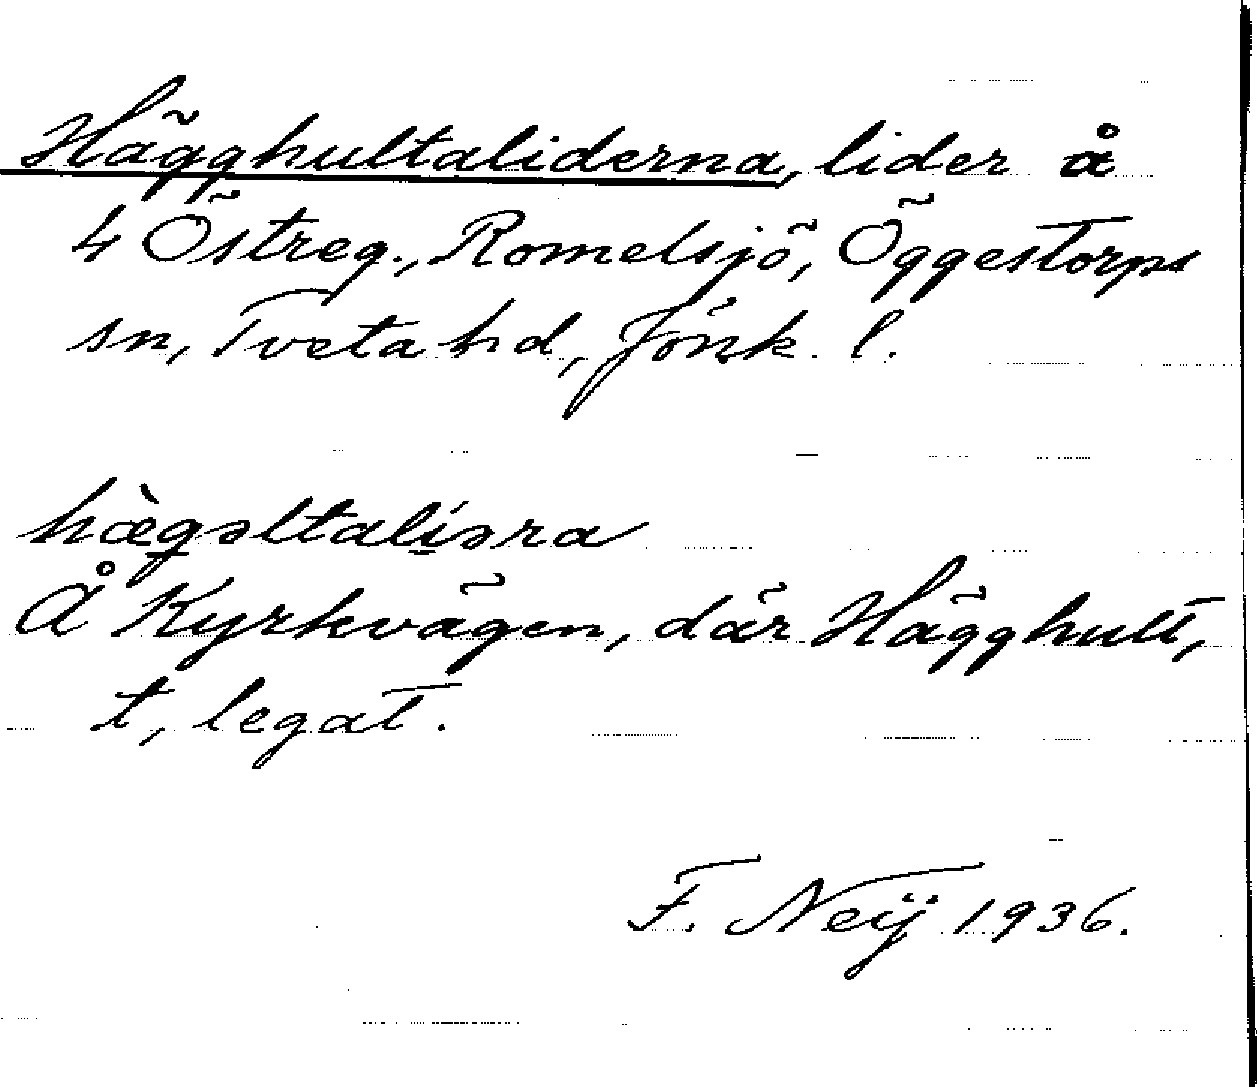 Hägghultaliderna, lider å
4 Östreg., Romelsjö, Öggestorps
sn, Tveta hd, Jönk. l.
hæ̀gəltali̱əra
Å Kyrkvägen, där Hägghult,
t, legat.
F. Neij 1936.